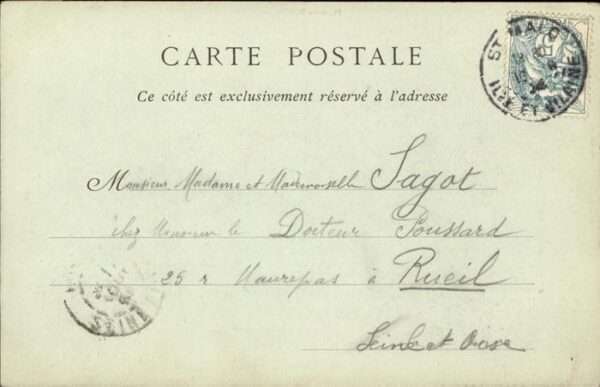 CARTE POSTALE
Ce côté est exclusivement réservé à l'adresse
ST MALO
ILLE ET VILAINE
Monsieur, Madame et Mademoiselle Sagot
chez Monsieur le Docteur Poussard
25 r Maurepas à Rueil
Seine et Oise